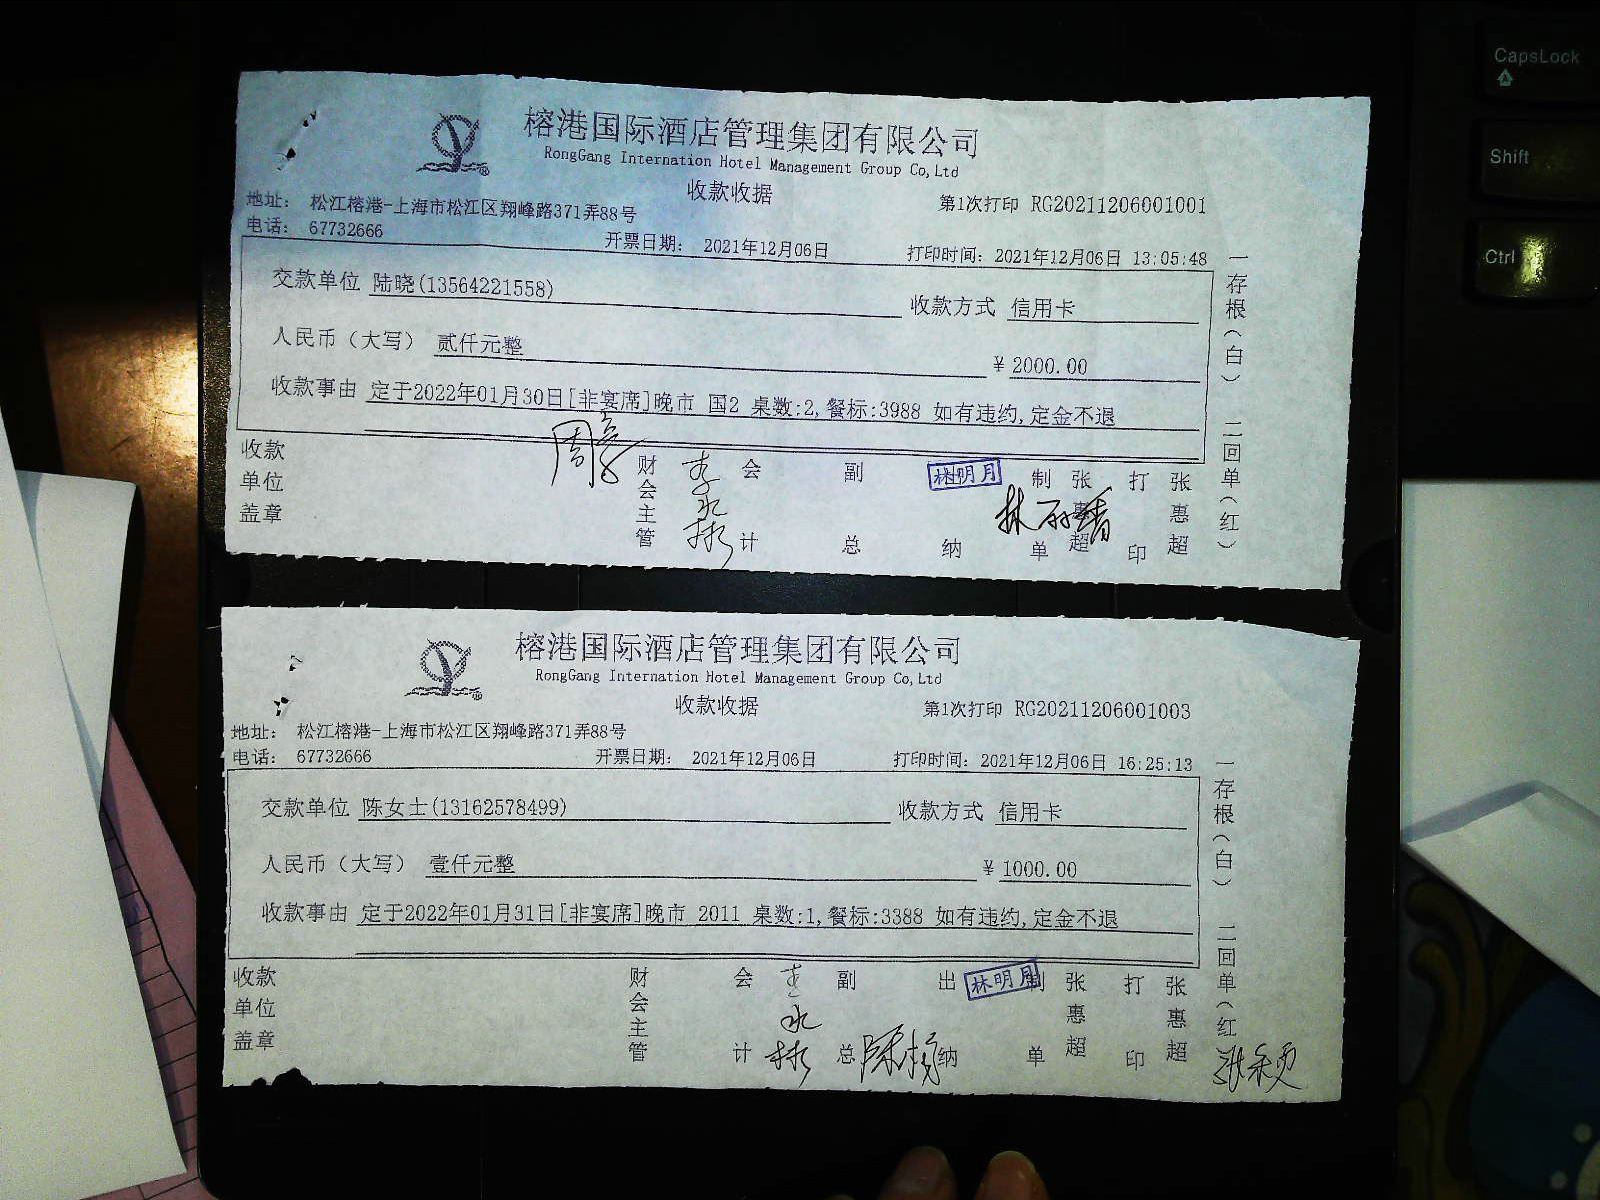 CapsLock
Shift
Ctrl
榕港国际酒店管理集团有限公司
RongGang Internation Hotel Management Group Co,Ltd
收款收据
第1次打印 RG20211206001001
地址： 松江榕港-上海市松江区翔峰路371弄88号
电话： 67732666
开票日期： 2021年12月06日
打印时间：2021年12月06日 13:05:48
交款单位 陆晓(13564221558)
收款方式 信用卡
人民币（大写） 贰仟元整
¥ 2000.00
收款事由 定于2022年01月30日[非宴席]晚市 国2 桌数:2,餐标:3988 如有违约,定金不退
一存根（白） 二回单（红）
收款单位盖章
财会主管
李永彬
会计
副总
林明月
纳
制单
张惠超
打印
张惠超
榕港国际酒店管理集团有限公司
RongGang Internation Hotel Management Group Co,Ltd
收款收据
第1次打印 RG20211206001003
地址： 松江榕港-上海市松江区翔峰路371弄88号
电话： 67732666
开票日期： 2021年12月06日
打印时间：2021年12月06日 16:25:13
交款单位 陈女士(13162578499)
收款方式 信用卡
人民币（大写） 壹仟元整
¥ 1000.00
收款事由 定于2022年01月31日[非宴席]晚市 2011 桌数:1,餐标:3388 如有违约,定金不退
一存根（白） 二回单（红
收款单位盖章
财会主管
会计
李永彬
副总
出纳
林明月
制单
张惠超
打印
张惠超